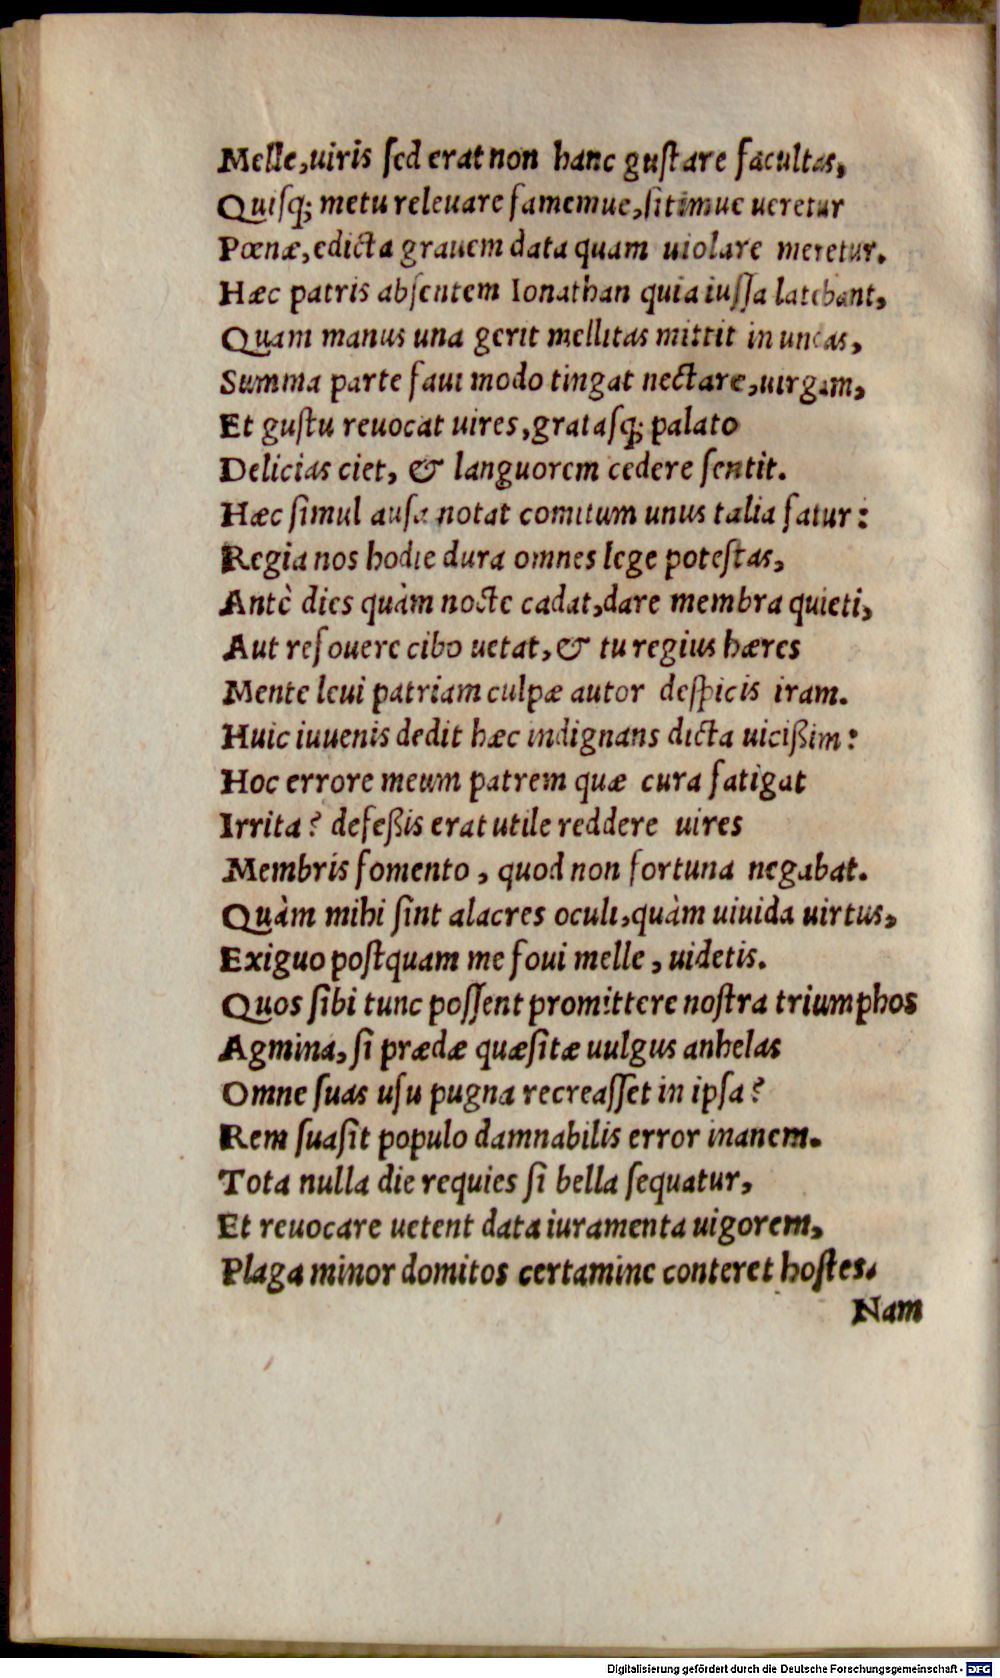 Melle,uiris ſed erat non hanc guſtare facultas,
Quiſq; metu releuare famemue,ſitimue ueretur
Pœnæ,edicta grauem data quam uiolare meretur.
Hæc patris abſentem Ionathan quia iuſſa latebant,
Quam manus una gerit mellitas mittit in undas,
Summa parte faui modo tingat nectare,uirgam,
Et guſtu reuocat uires,gratasq; palato
Delicias ciet, & languorem cedere ſentit.
Hæc ſimul auſa notat comitum unus talia fatur:
Regia nos hodie dura omnes lege poteſtas,
Antè dies quàm nocte cadat,dare membra quieti,
Aut refouere cibo uetat,& tu regius hæres
Mente leui patriam culpæ autor deſpicis iram.
Huic iuuenis dedit hæc indignans dicta uicißim:
Hoc errore meum patrem quæ cura fatigat
Irrita? defeßis erat utile reddere uires
Membris fomento, quod non fortuna negabat.
Quàm mihi ſint alacres oculi,quàm uiuida uirtus,
Exiguo poſtquam me foui melle, uidetis.
Quos ſibi tunc poſſent promittere noſtra triumphos
Agmina, ſi prædæ quæſitæ uulgus anhelas
Omne ſuas uſu pugna recreaſſet in ipſa?
Rem ſuaſit populo damnabilis error inanem.
Tota nulla die requies ſi bella ſequatur,
Et reuocare uetent data iuramenta uigorem,
Plaga minor domitos certamine conteret hoſtes.
Nam
Digitalisierung gefördert durch die Deutsche Forschungsgemeinschaft - DFG